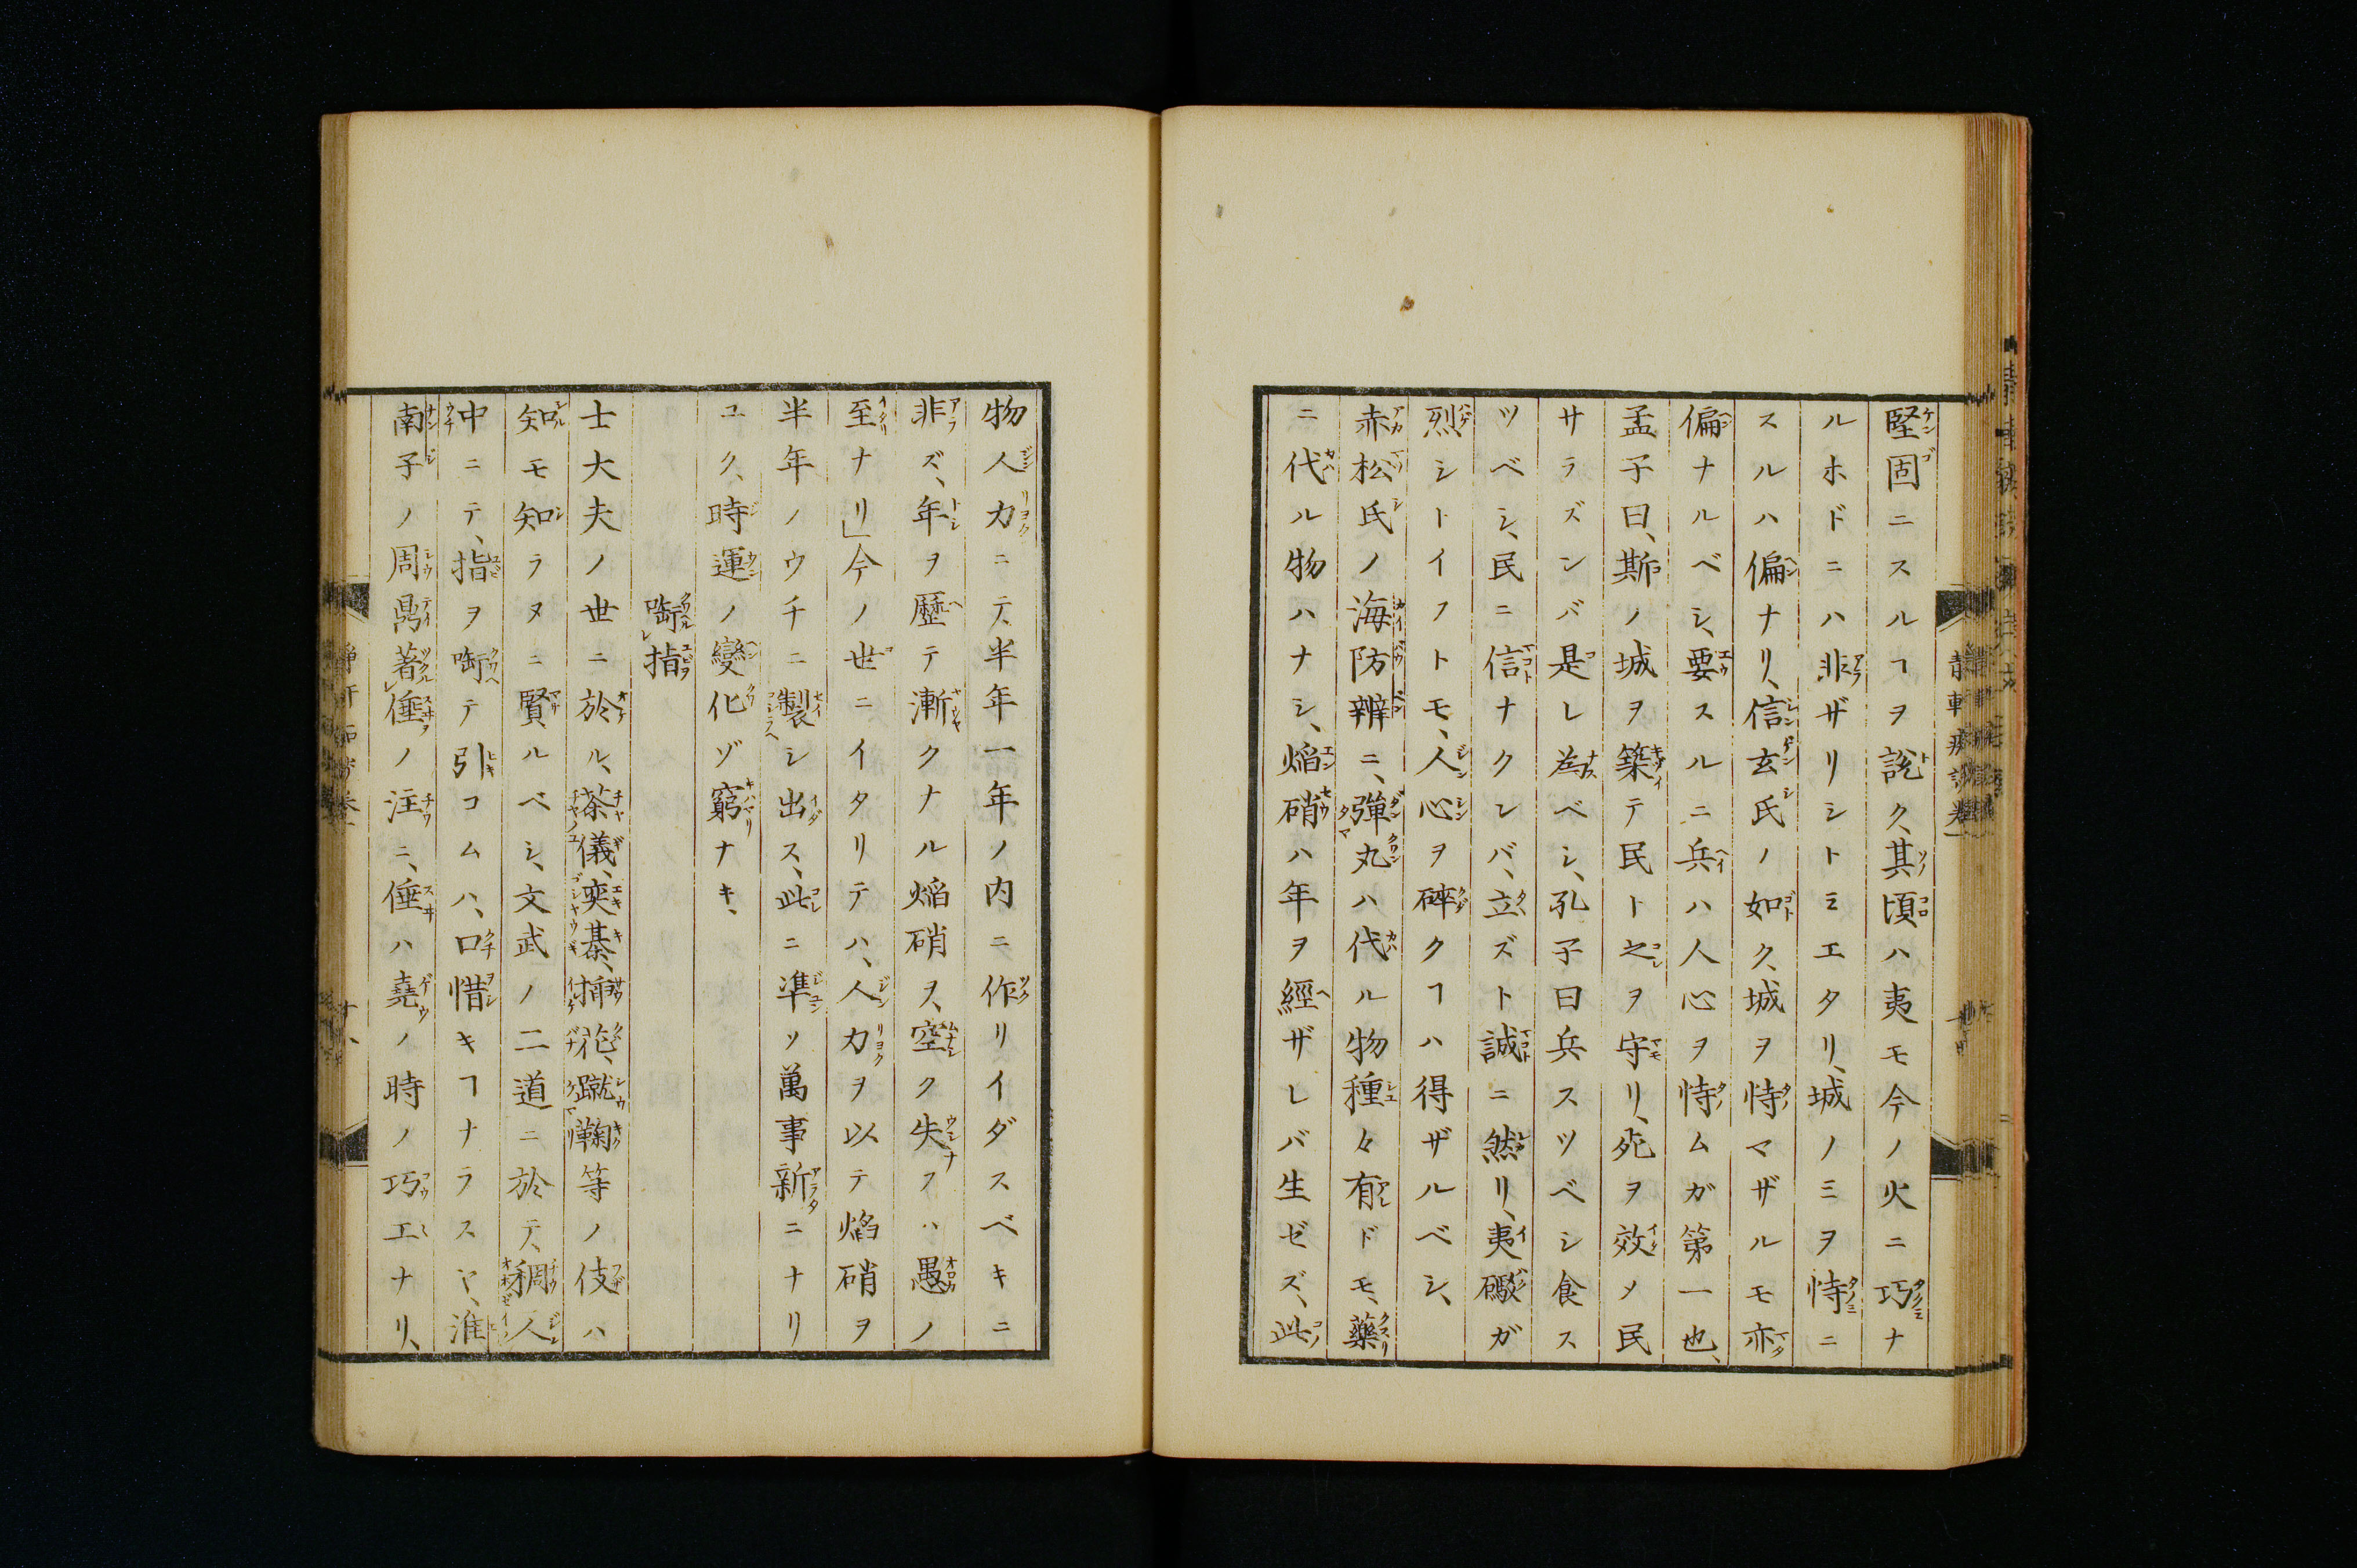 堅固ニスルヿヲ說ク、其頃ハ夷モ今ノ火ニ巧ナ
ルホドニハ非ザリシトミエタリ、城ノミヲ恃ニ
スルハ偏ナリ、信玄氏ノ如ク、城ヲ恃マザルモ亦
偏ナルベシ、要スルニ兵ハ人心ヲ恃ムガ第一也、
孟子曰、斯ノ城ヲ築テ民ト之ヲ守リ、死ヲ效メ民
サラズンバ是レ為ベシ、孔子曰兵スツベシ食ス
ツベシ、民ニ信ナクンバ、立ズト誠ニ然リ、夷礟ガ
烈シトイフトモ、人心ヲ碎クヿハ得ザルベシ、
赤松氏ノ海防辨ニ、彈丸ハ代ル物種々有ドモ、藥
ニ代ル物ハナシ、焔硝ハ年ヲ經ザレバ生ゼズ、此
物人力ニテ、半年一年ノ内ニ作リイダスベキニ
非ズ、年ヲ歷テ漸クナル焔硝ヲ、空ク失フハ愚ノ
至ナリ」今ノ世ニイタリテハ、人力ヲ以テ焔硝ヲ
半年ノウチニ製シ出ス、此ニ準ソ萬事新ニナリ
ユク、時運ノ變化ゾ窮ナキ、
啣指
士大夫ノ世ニ於ル、茶儀、奕棊、揷花、蹴鞠等ノ伎ハ
知モ知ラヌニ賢ルベシ、文武ノ二道ニ於テ、稠人
中ニテ、指ヲ啣テ引コムハ、口惜キヿナラスヤ、淮
南子ノ周鼎著倕ノ注ニ、倕ハ堯ノ時ノ巧工ナリ、